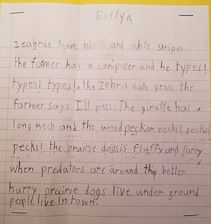 Evelyn
zeabras have black and white stripes
the farmer has a computer and he types!
types! types!, the zebra eats grass the
farmer says I'll pass. The giraffe has a
long neck and the wood pecker pecks! pecks!
pecks! the prairie dogs is fluffy and furry
when predators are around they better
hurry prairie dogs live under ground
people live in town!